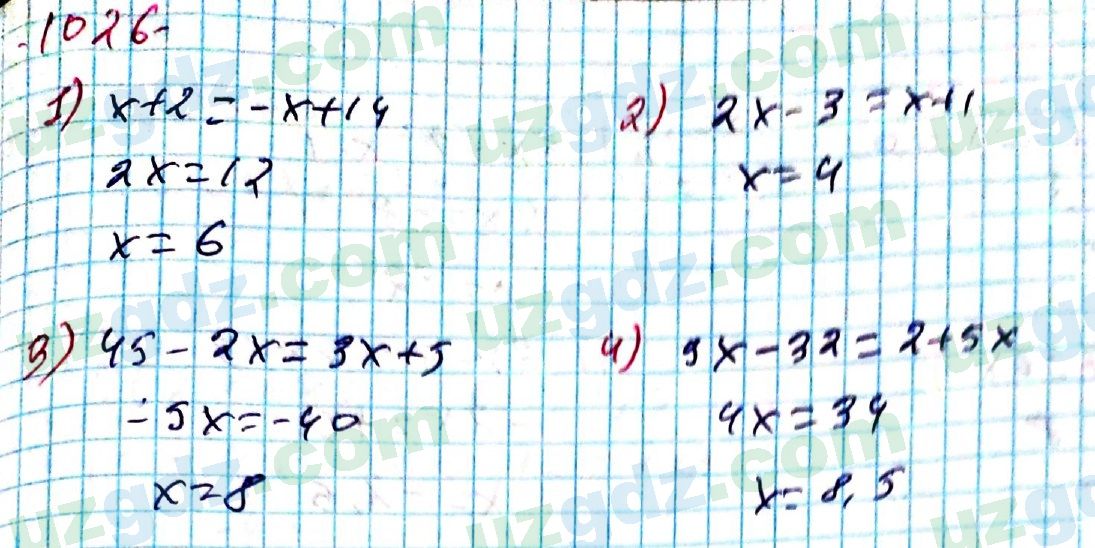 1026
1) x+2=-x+14
2x=12
x=6
2) 2x-3=x+1
x=4
3) 45-2x=3x+5
-5x=-40
x=8
4) 9x-32=2+5x
4x=34
x=8,5
uzgdz.com